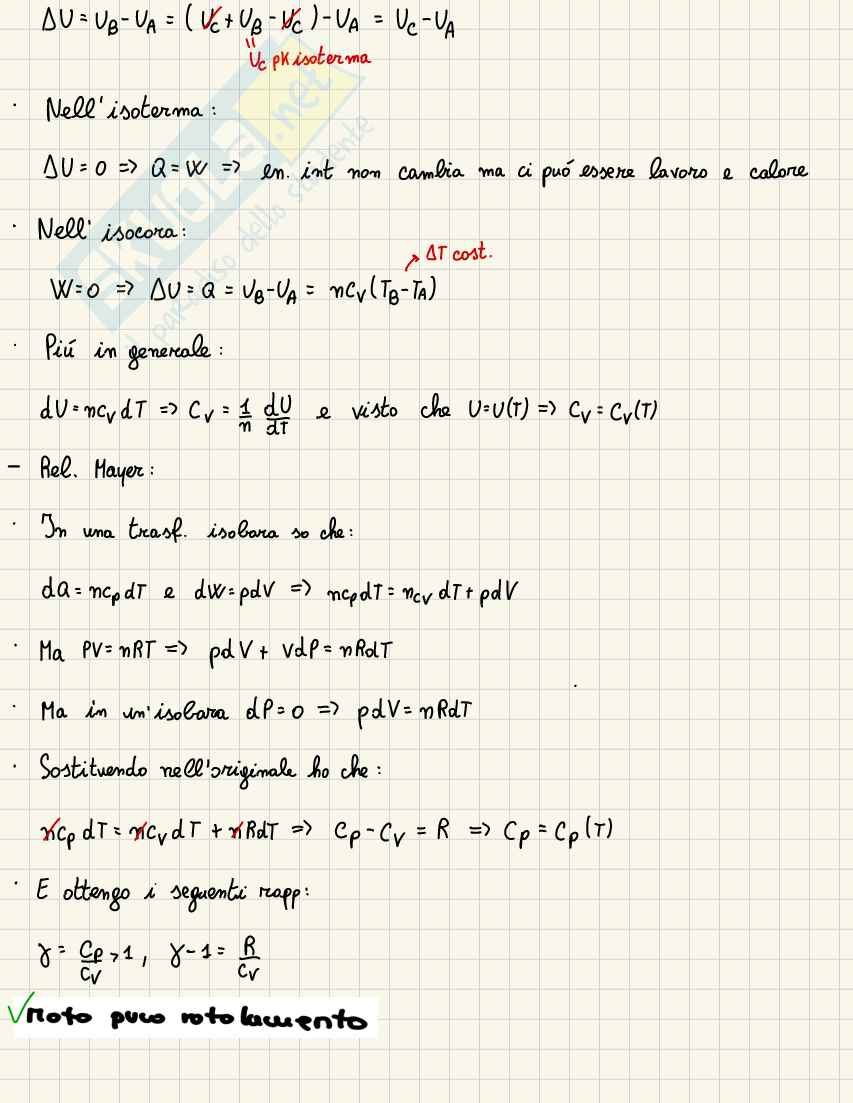 ΔU = U_B - U_A = (U_C + U_B - U_C) - U_A = U_C - U_A
U_C pk isoterma
· Nell'isoterma:
ΔU = 0 => Q = W => en. int non cambia ma ci puó essere lavoro e calore
· Nell' isocora:
ΔT cost.
W = 0 => ΔU = Q = U_B - U_A = nc_V (T_B - T_A)
· Piú in generale:
dU = nc_V dT => C_V = 1/n dU/dT e visto che U = U(T) => C_V = C_V(T)
- Rel. Mayer:
· In una trasf. isobara so che:
dQ = nc_p dT e dW = pdV => nc_p dT = nc_V dT + pdV
· Ma PV = nRT => pdV + VdP = nRdT
· Ma in un'isobara dP = 0 => pdV = nRdT
· Sostituendo nell'originale ho che:
nc_p dT = nc_V dT + nRdT => C_p - C_V = R => C_p = C_p(T)
· E ottengo i seguenti rapp:
γ = C_p/C_V > 1, γ - 1 = R/C_V
√moto puro rotolamento
SKUOLA.net
il paradiso dello studente